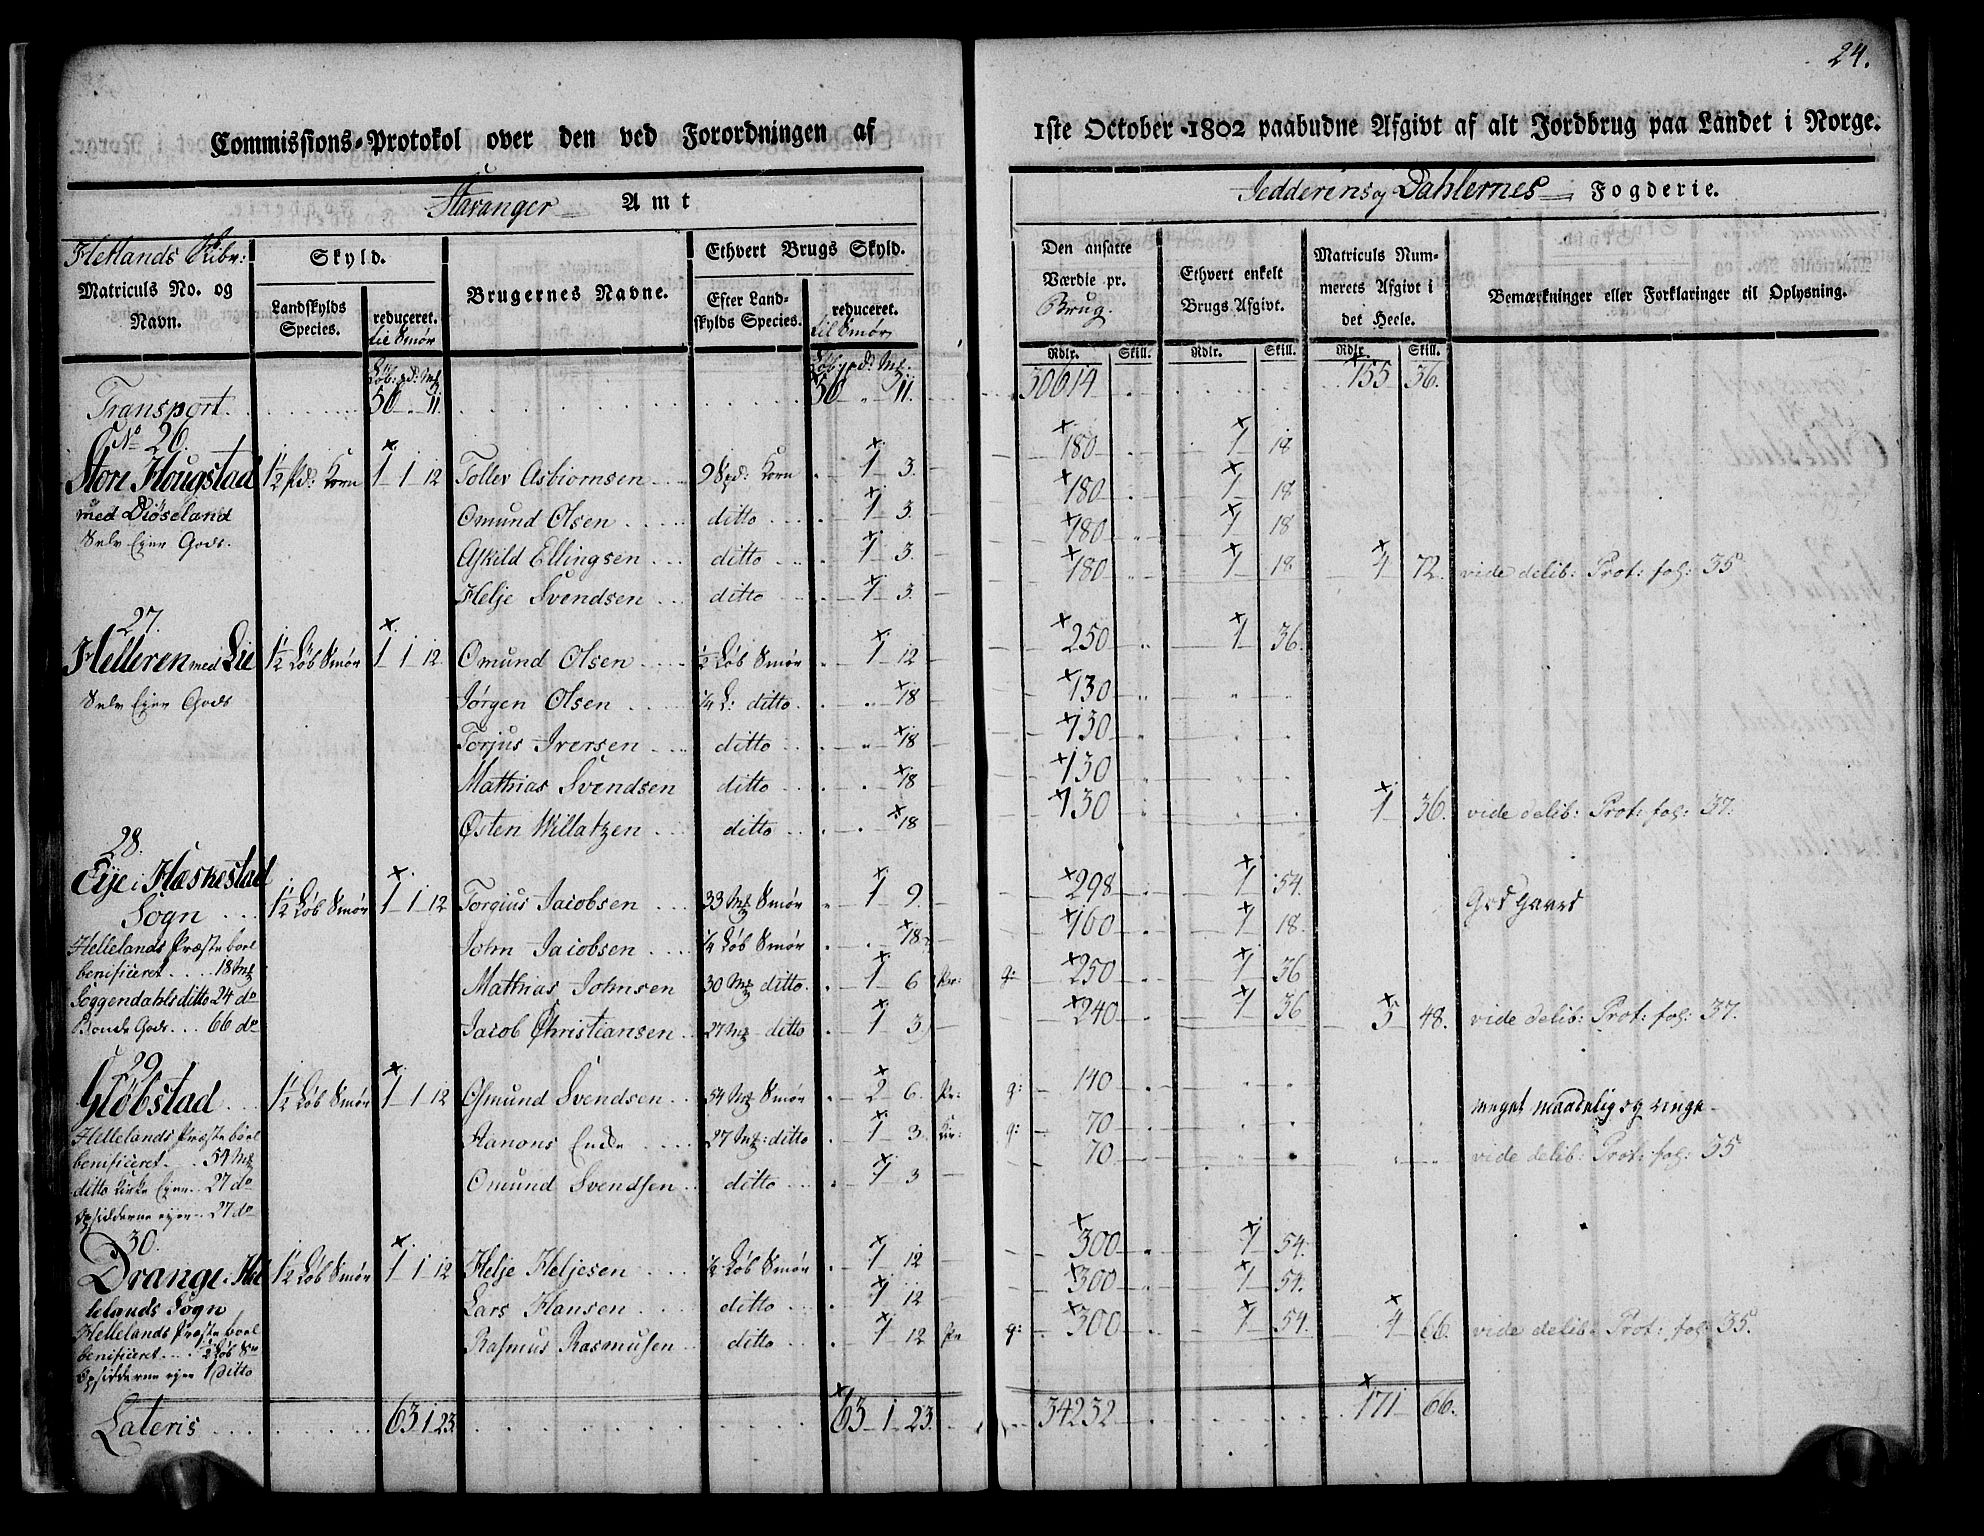 24.
Commissions-Protokol over den ved Forordningen af 1ste October 1802 paabudne Afgivt af alt Jordbrug paa Landet i Norge.
Stavanger Amt
Jedderens og Dahlernes Fogderie.
Matriculs No. og Navn.
Skyld.
Landskylds Species.
reduceret. til Smør
Brugernes Navne.
Ethvert Brugs Skyld.
Efter Landskylds Species.
reduceret. til Smør
Den ansatte Værdie pr. Brug.
Ethvert enkelt Brugs Afgivt.
Matriculs Nummerets Afgivt i det Heele.
Bemærkninger eller Forklaringer til Oplysning.
Løb. pd: Mk
Løb. pd: Mk.
Rdlr. Skill. Rdlr. Skill. Rdlr. Skill.
Transport 50 " 11. 50 " 11. 30614 155 36.
No 26.
Store Hougstad 1½ Pd: Korn 1 1 12 Tollev Asbiornsen 9 Spd: Korn 1 3. 180 1 18
med Diöseland Omund Olsen ditto 1 3. 180 1 18
Selv Ejer Gods. Askild Ellingsen ditto 1 3. 180 1 18
Helje Svendsen ditto 1 3. 180 1 18 4 72. vide delib: Prot: fol: 35
27.
Helleren med Lie 1½ Løb Smør 1 1 12 Omund Olsen ½ Løb Smør 1 12 250 1 36.
Selv Ejer Gods Jørgen Olsen ¼ L: ditto 18 130
Torjus Iversen ditto 18 130
Mathias Svendsen ditto 18 130
Østen Willatzen ditto 18 130 1 36. vide delib: Prot: fol: 37.
28.
Eije i Hæskestad
Sogn 1½ Løb Smør 1 1 12 Torgius Jacobsen 33 Mk Smør 1 9. 298 1 54. God Gaard
Hellelands Præstebord John Jacobsen ¼ Løb Smør 18 160 1 18.
benificeret 18 Mk Mathias Johnsen 30 Mk ditto 1 6 Pr: g: 250 1 36
Soggendahls ditto 24 do
Bonde Gods 66 do Jacob Christiansen 27 Mk ditto 1 3 240 1 36 5 48. vide delib: Prot: fol: 37.
29.
Glöbstad 1½ Løb Smør 1 1 12 Osmund Svendsen 54 Mk Smør 2 6. Pr: g: 140 meget maadelig og ringe
Hellelands Præstebord Hanons Enke 27 Mk: ditto 1 3. Kir: g: 70
benificeret 54 Mk vide delib: Prot: fol: 35
ditto Kirke Ejer 27 do Omund Svendsen ditto 1 3 70
Opsidderne ejer 27 do
30.
Drange i Hel- 1½ Løb Smør 1 1 12 Helje Heljesen ½ Løb Smør 1 12 300 1 54.
lelands Sogn Lars Hansen ditto 1 12 300 1 54.
Hellelands Præstebord Rasmus Rasmusen ditto 1 12 Pr g: 300 1 54. 4 66. vide delib: Prot: fol: 35.
benificeret ½ Løb Sm
Opsidderne ejer 1 ditto
Lateris 63 1 23. 63 1 23. 34232 171 66.